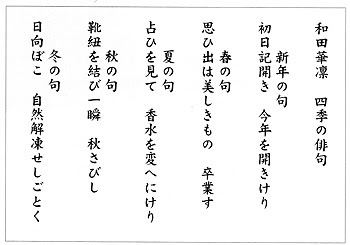 和田華凛　四季の俳句
新年の句
初日記開き　今年を開きけり
春の句
思ひ出は美しきもの　卒業す
夏の句
占ひを見て　香水を変へにけり
秋の句
靴紐を結び一瞬　秋さびし
冬の句
日向ぼこ　自然解凍せしごとく